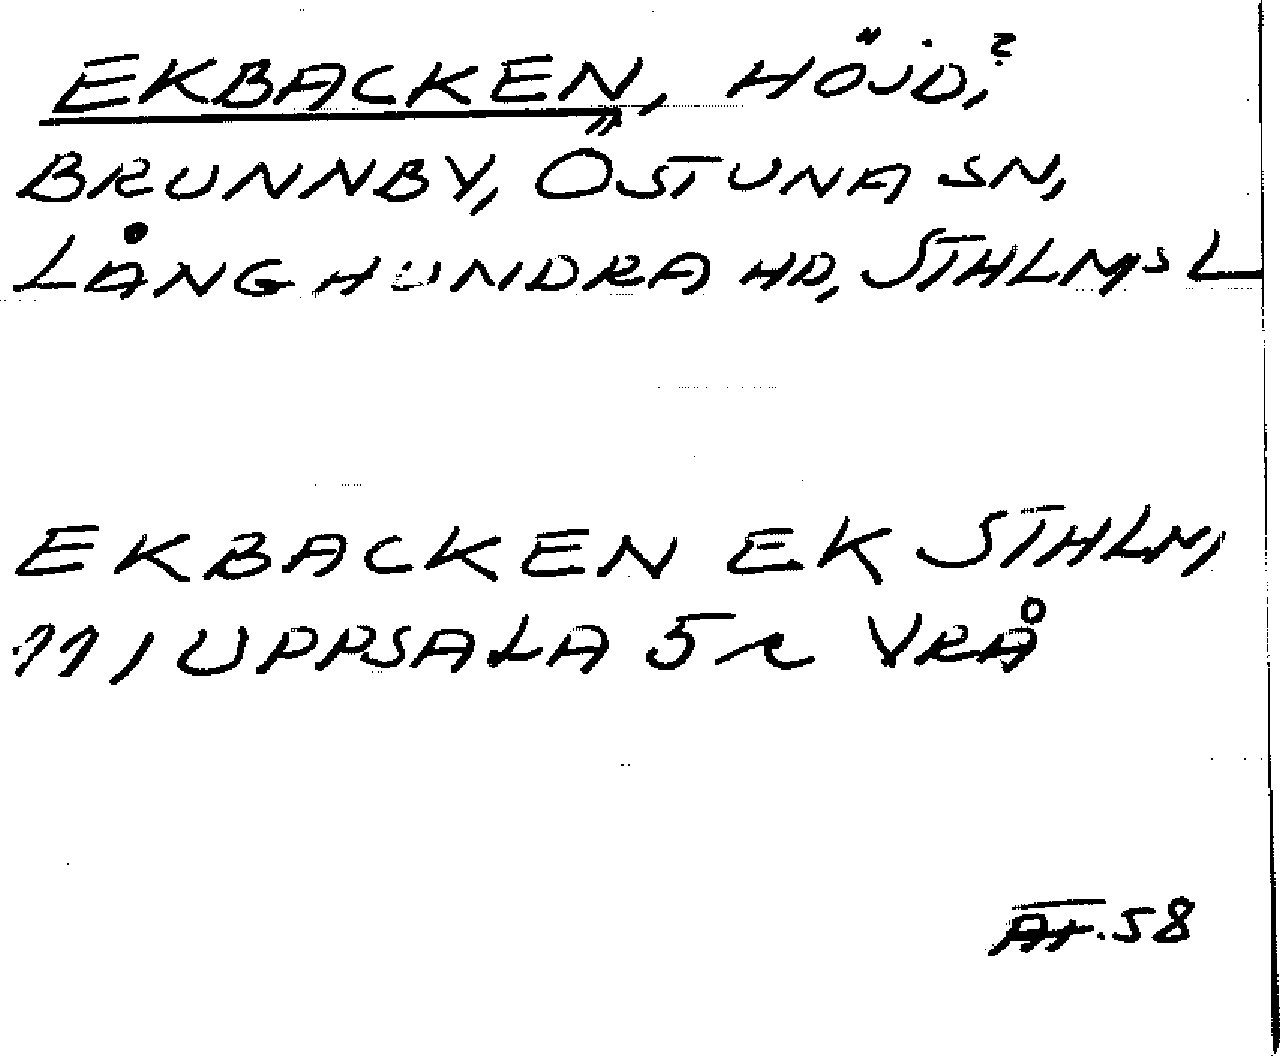 EKBACKEN, HÖJD,?
BRUNNBY, ÖSTUNA SN,
LÅNGHUNDRA HD, STHLMS L
EKBACKEN EK STHLM,
11, UPPSALA 5 r VRÅ
58